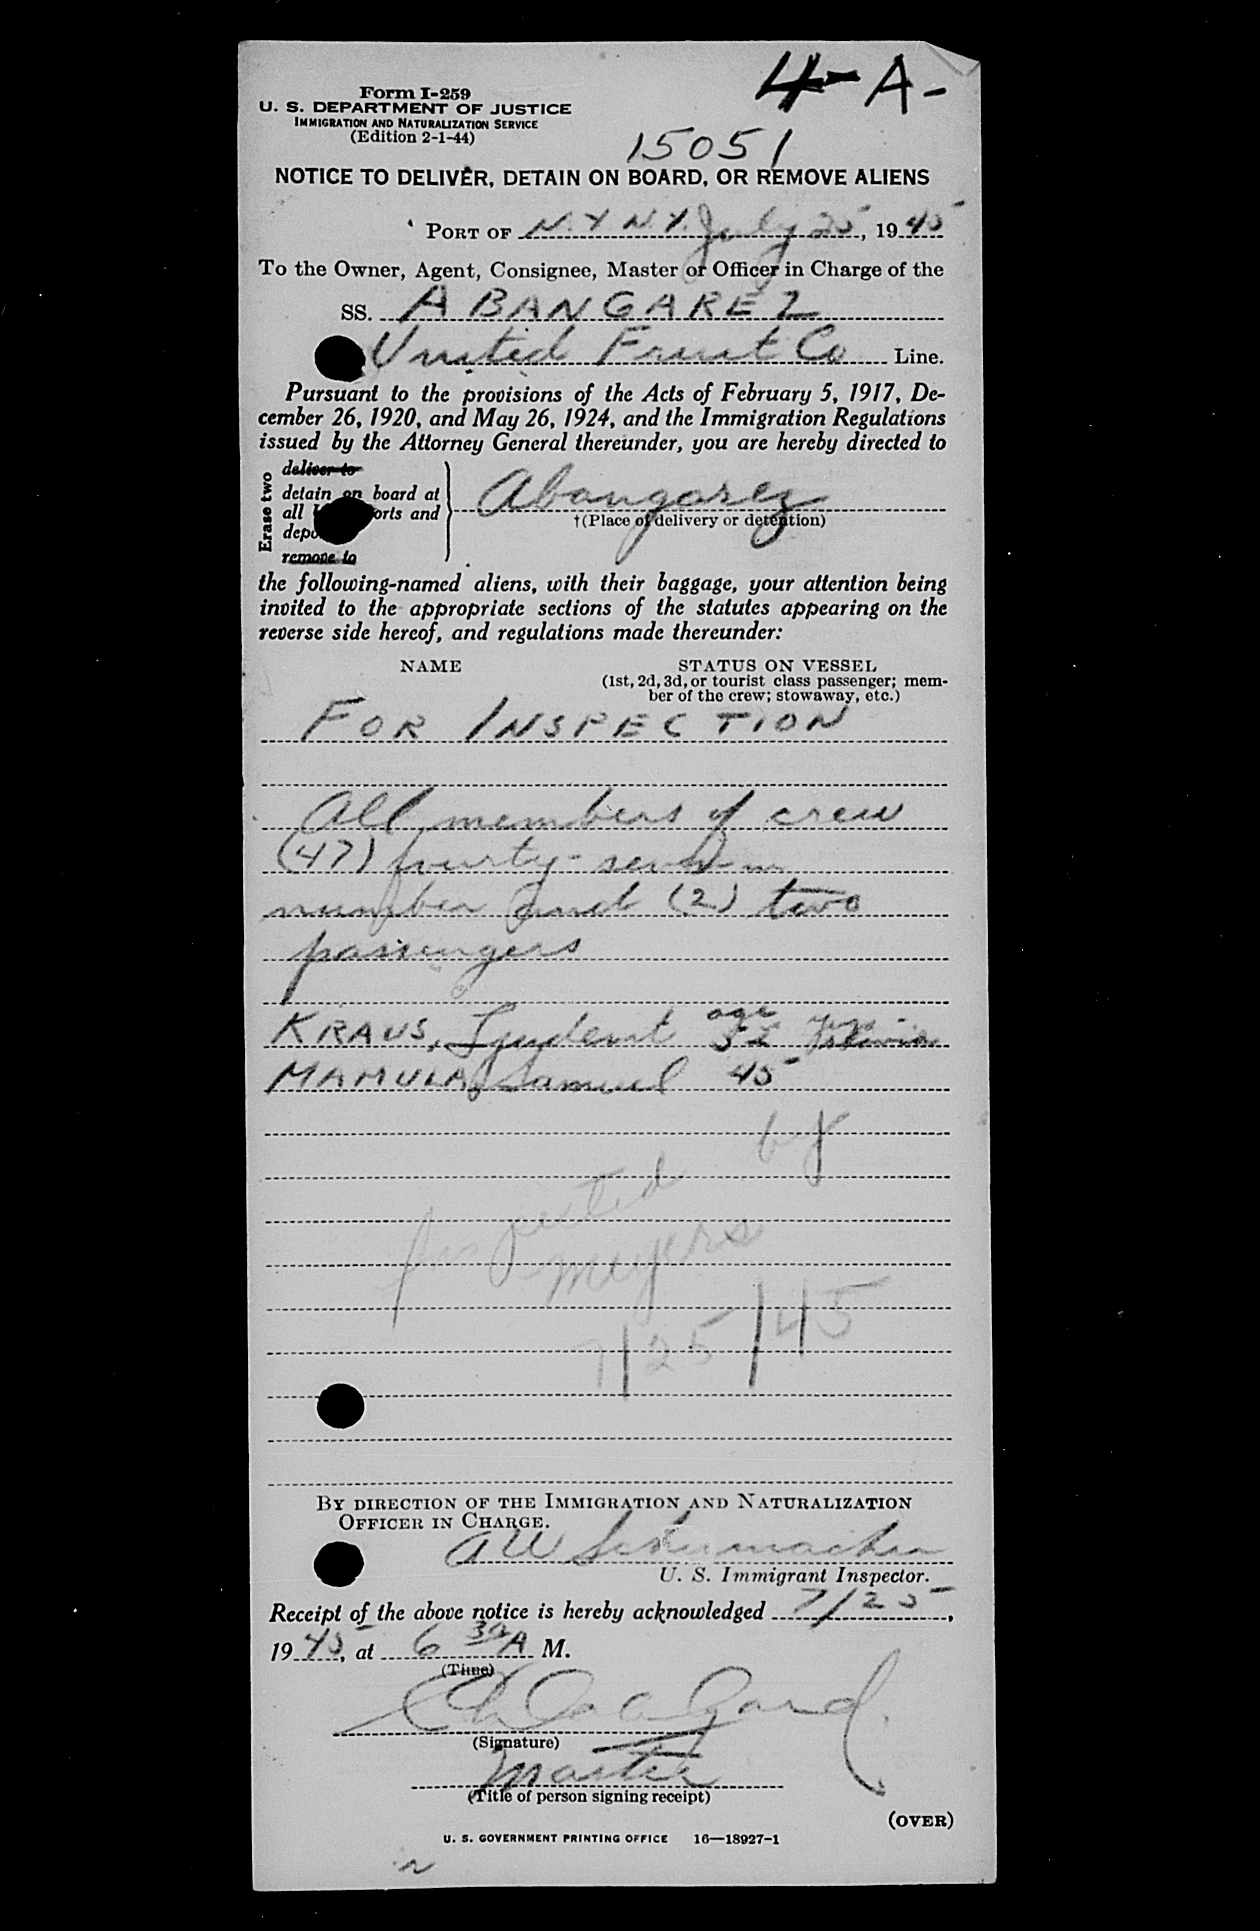 4-A-
Form I-259
U. S. DEPARTMENT OF JUSTICE
IMMIGRATION AND NATURALIZATION SERVICE
(Edition 2-1-44)
15051
NOTICE TO DELIVER, DETAIN ON BOARD, OR REMOVE ALIENS
PORT OF N.Y N.Y. July 25, 1945
To the Owner, Agent, Consignee, Master or Officer in Charge of the
SS. ABANGAREZ
United Fruit Co Line.
Pursuant to the provisions of the Acts of February 5, 1917, De-
cember 26, 1920, and May 26, 1924, and the Immigration Regulations
issued by the Attorney General thereunder, you are hereby directed to
Erase two
deliver to
detain on board at
all orts and
depo
remove to
Abangarez
†(Place of delivery or detention)
the following-named aliens, with their baggage, your attention being
invited to the appropriate sections of the statutes appearing on the
reverse side hereof, and regulations made thereunder:
NAME STATUS ON VESSEL
(1st, 2d, 3d, or tourist class passenger; mem-
ber of the crew; stowaway, etc.)
FOR INSPECTION
All members of crew
(47) fourty-seven in
number and (2) two
passengers
KRAUS, age 52
MAMULA, Samuel 45
Inspected by
Meyers
7/25/45
BY DIRECTION OF THE IMMIGRATION AND NATURALIZATION
OFFICER IN CHARGE.
AW Schumacher
U. S. Immigrant Inspector.
Receipt of the above notice is hereby acknowledged 7/25,
1945, at 6 30 A M.
(Time)
(Signature)
Master
(Title of person signing receipt)
(OVER)
U. S. GOVERNMENT PRINTING OFFICE 16—18927-1